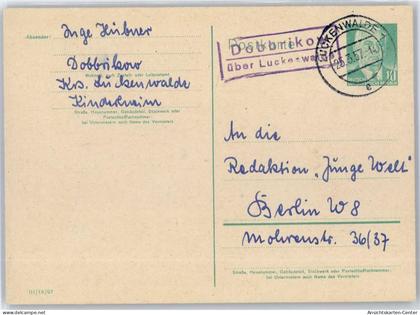 Absender:
Inge Hübner
Dobbrikow
Wohnort, auch Zustell- oder Leitpostamt
Krs. Luckenwalde
Kinderheim
Straße, Hausnummer, Gebäudeteil, Stockwerk oder
Postschließfachnummer;
bei Untermietern auch Name des Vermieters
Postkarte
Dobbrikow
über Luckenwalde
LUCKENWALDE 1
c
An die
Redaktion „Junge Welt"
Berlin W 8
Mohrenstr. 36/37
Straße, Hausnummer, Gebäudeteil, Stockwerk oder Postschließfachnummer;
bei Untermietern auch Name des Vermieters
III/18/97
http://www.ansichtskarten-center.de/
Copyright: Ansichtskarten-Center